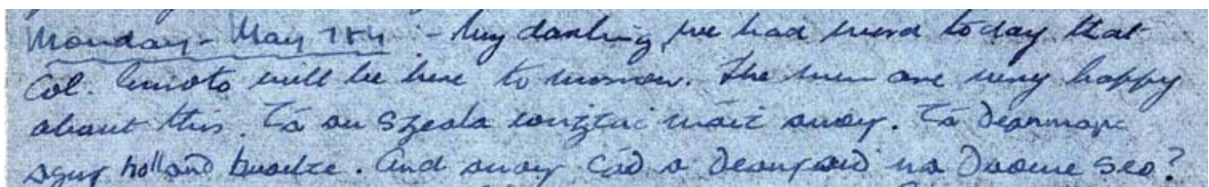 Monday - May 7th :- My darling, we had word today that
Col. Emoto will be here to morrow. The men are very happy
about this. Tá an sgeala iongtac mait anois. Tá Deanmarc
agus Holland buailte. And anois cad a deanfaid na Daoine seo?